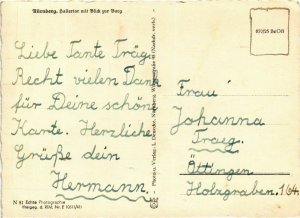 Nürnberg, Hallertor mit Blick zur Burg
Liebe Tante Träg.
Recht vielen Dank
für Deine schöne
Karte. Herzliche
Grüße dein
Hermann.
N 81 Echte Photographie
Frau
Johanna
Traeg.
Öttingen
Holzgraben 1/64.